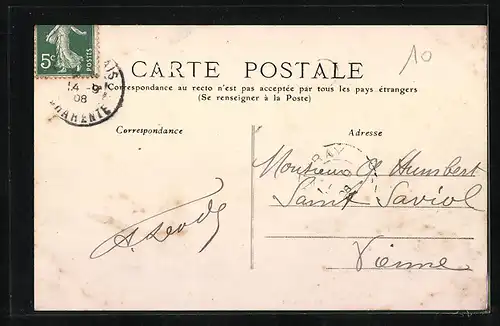 10
5c POSTES
14 -9
08
CHARENTE
CARTE POSTALE
Correspondance au recto n'est pas acceptée par tous les pays étrangers
(Se renseigner à la Poste)
Correspondance
Adresse
Monsieur G Humbert
Saint Saviol
Vienne